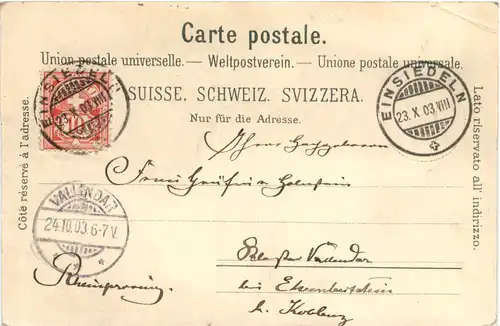 Carte postale.
Union postale universelle. — Weltpostverein. — Unione postale universale.
SUISSE. SCHWEIZ. SVIZZERA.
Nur für die Adresse.
Côté réservé à l'adresse.
Lato riservato all' indirizzo.
EINSIEDELN
23.X.03.VIII
EINSIEDELN
23.X.03.VIII
VALLENDAR
24.10.03.6-7V.
Ihrer Hochgeboren
Frau Gräfin v. Holnstein
Kloster Vallendar
bei Ehrenbreitstein
b. Koblenz
Rheinprovinz.